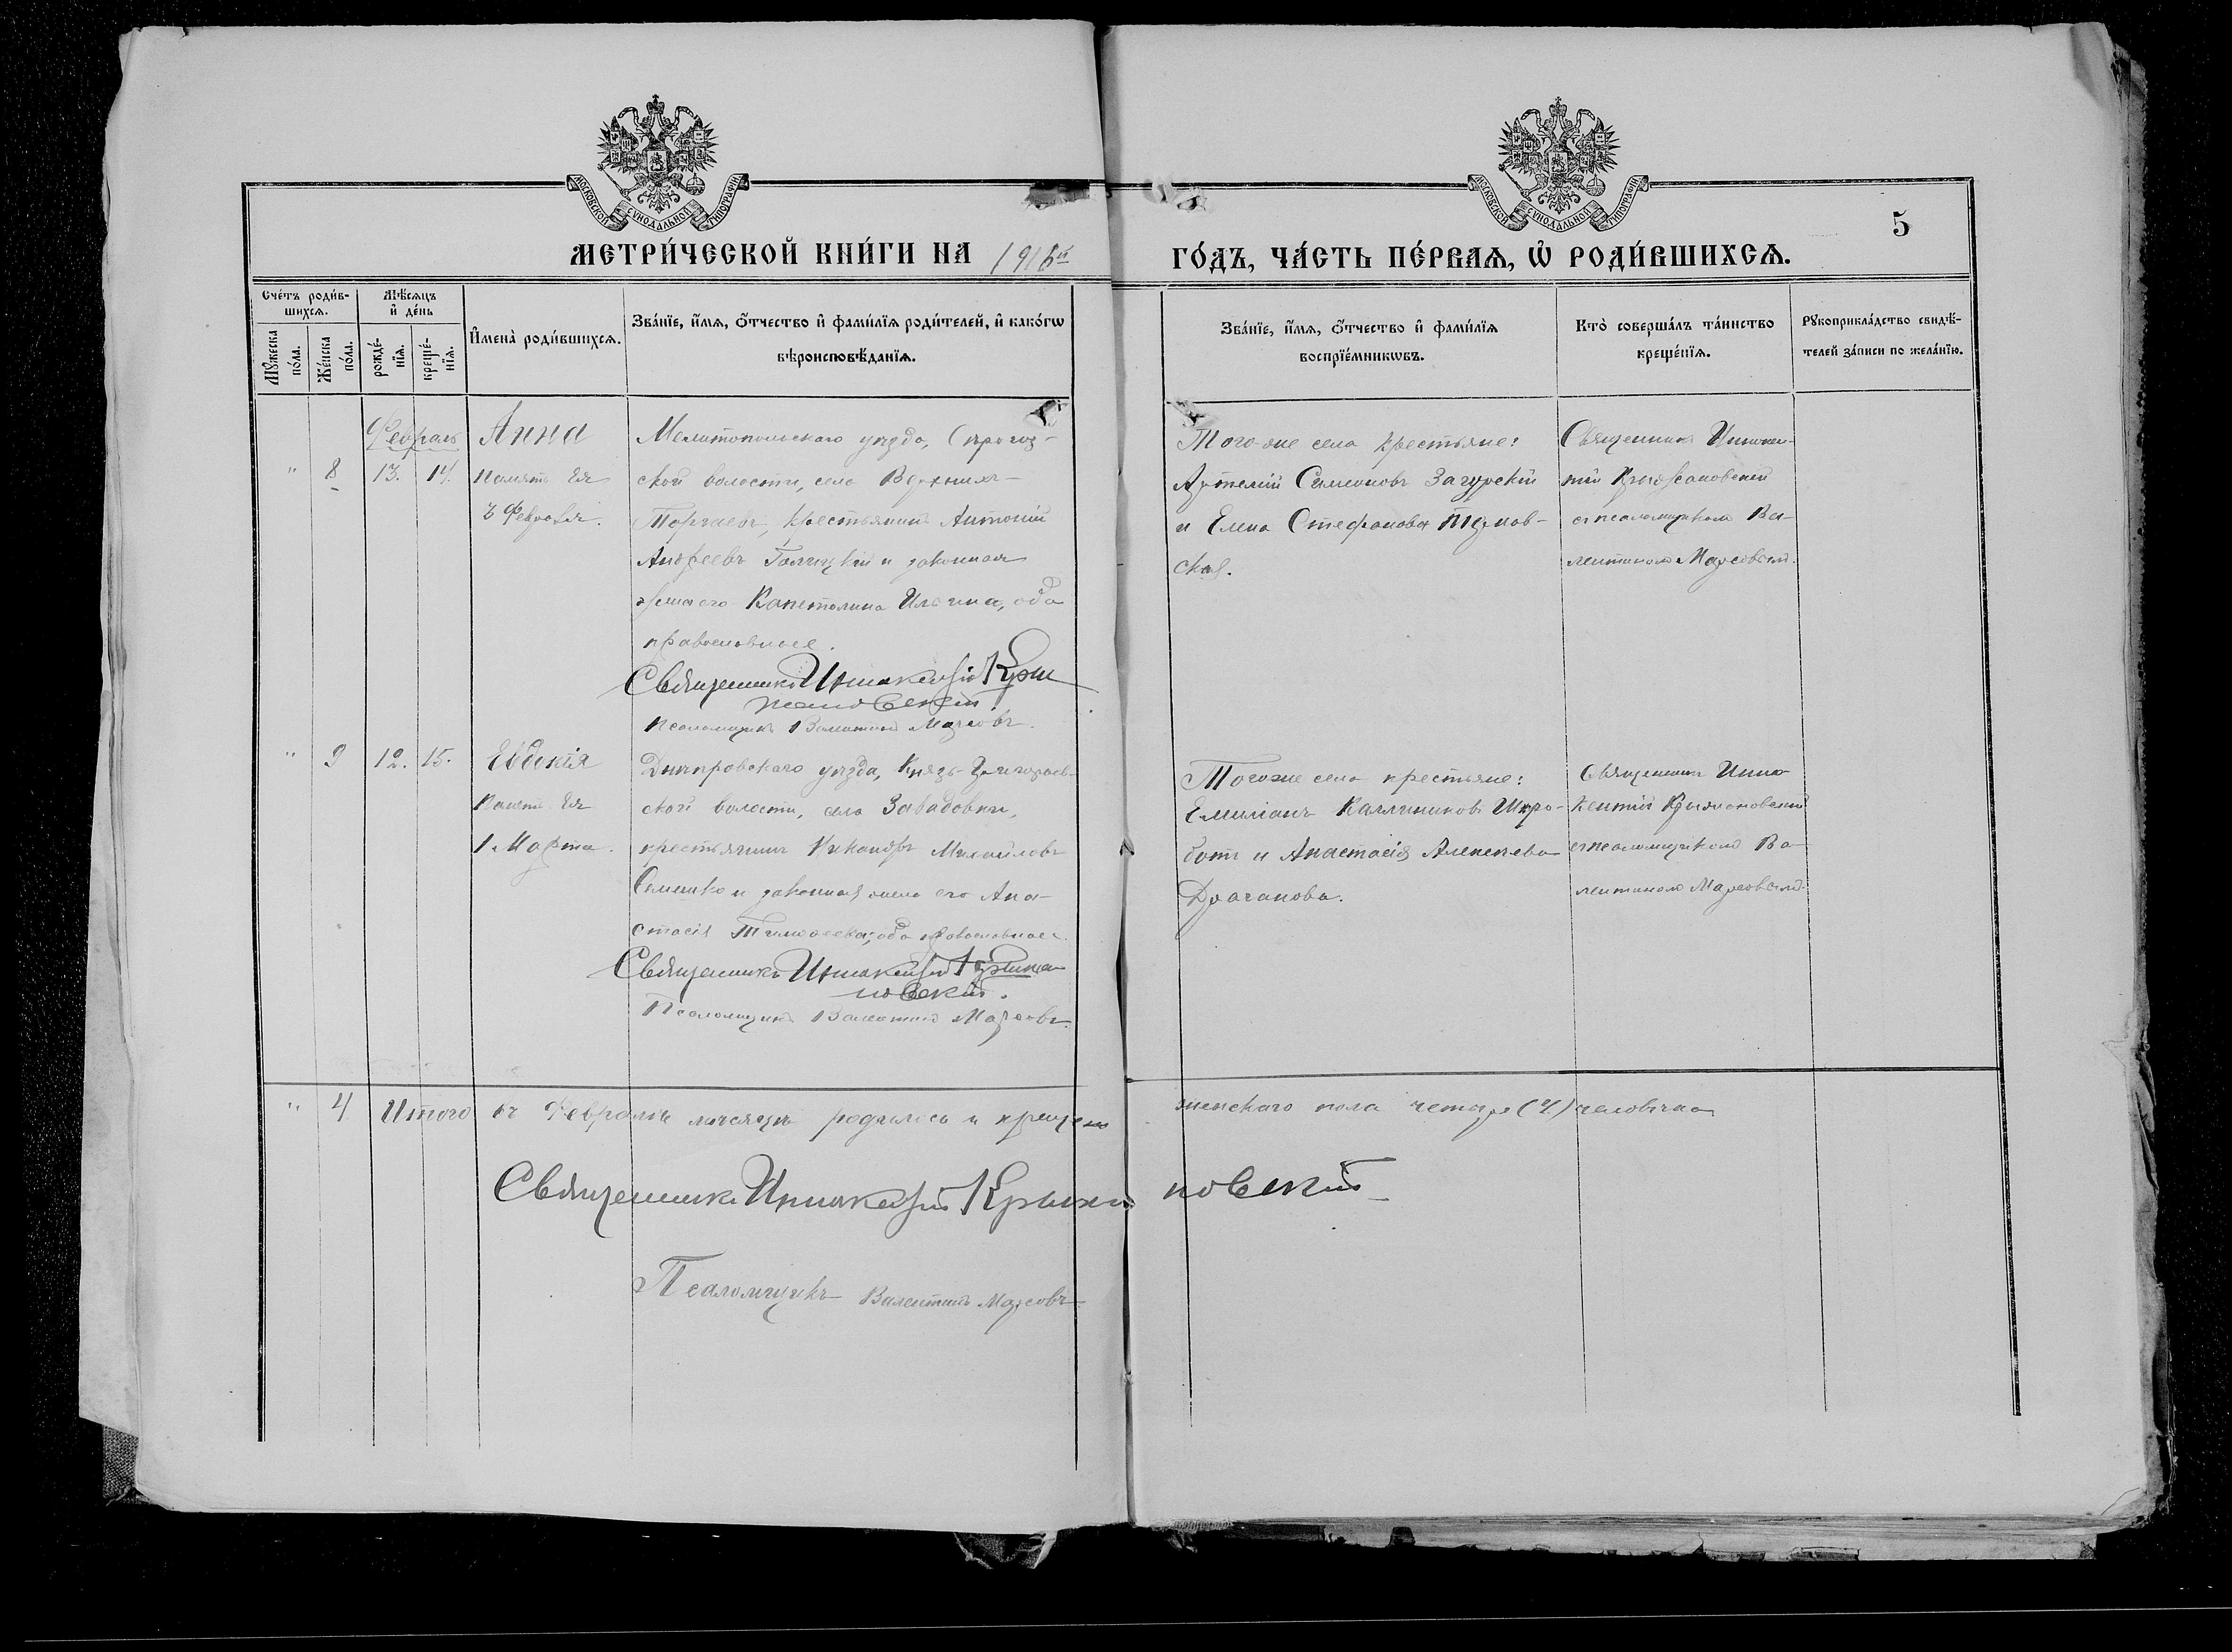 МОСКОВСКОЙ СѴНОДАЛЬНОЙ ТИПОГРАФІИ
МОСКОВСКОЙ СѴНОДАЛЬНОЙ ТИПОГРАФІИ
5
МЕТРИ́ЧЕСКОЙ КНИ́ГИ НА 1916й ГО́ДЪ, ЧА́СТЬ ПЕ́РВАѦ, Ѡ҆ РОДИ́ВШИХСѦ.
Сче́тъ роди́в-
шихсѧ.
Мꙋ́жеска
по́ла.
Же́нска
по́ла.
Мѣ́сѧцъ
и҆ де́нь
рожде́-
нїѧ.
креще́-
нїѧ.
И҆мена̀ роди́вшихсѧ.
Зва́нїе, и҆́мѧ, ѻ҆́тчество и҆ фами́лїѧ роди́телей, и҆ како́гѡ
вѣроисповѣ́данїѧ.
Зва́нїе, и҆́мѧ, ѻ҆́тчество и҆ фами́лїѧ
воспрїе́мникѡвъ.
Кто̀ соверша́лъ та́инство
креще́нїѧ.
Рꙋкоприкла́дство свидѣ́-
телей за́писи по жела́нїю.
Февраль
" 8 13. 14.
Анна
память Ея
3 Февраля.
Мелитопольскаго уѣзда, Сѣрогоз-
ской волости, села Верхнихъ-
Торгаевъ, крестьянинъ Антоній
Андреевъ и законная
жена его Капетолина Ильина, оба
православные.
Священникъ Иннокентій Кры
жановскій
Псаломщикъ Валентинъ
Того-же села крестьяне:
Артемій Симеоновъ Загурскій
и Елена Стефанова
ская.
Священникъ Иннокен-
тій Крыжановскій
съ псаломщикомъ Ва-
лентиномъ
" 9 12. 15.
Евдокія
Память Ея
1 Марта.
Днѣпровскаго уѣзда, Князе-Григорьев-
ской волости, села Завадовки,
крестьянинъ Никаноръ Михайловъ
и законная жена его Ана-
стасія Тимофеева, оба православные.
Священникъ Иннокентій Крыжа-
новскій.
Псаломщикъ Валентинъ
Того-же села крестьяне:
Емиліанъ Каллиниковъ Шкро-
ботъ и Анастасія Алексѣева
Драганова.
Священникъ Инно-
кентій Крыжановскій
съ псаломщикомъ Ва-
лентиномъ
" 4 Итого въ Февралѣ мѣсяцѣ родилось и крещено женскаго пола четыре (4) человѣка
Священникъ Иннокентій Крыжановскій
Псаломщикъ Валентинъ